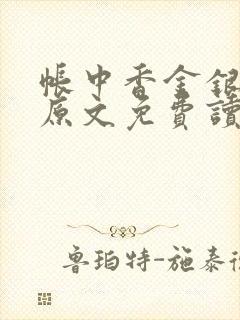 帳中香金銀
原文免費讀
魯珀特-施泰德